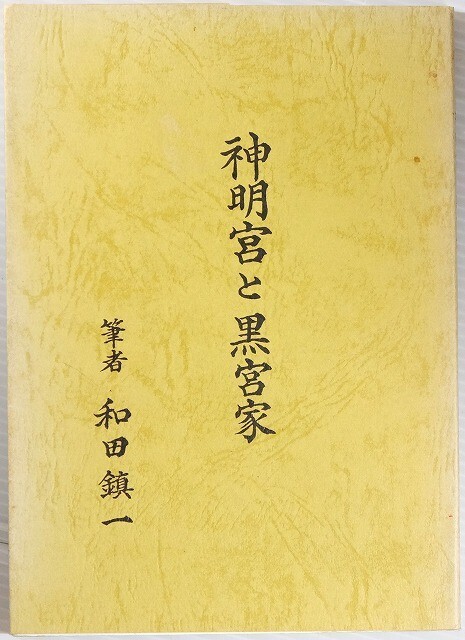 神明宮と黒宮家
筆者 和田鎮一